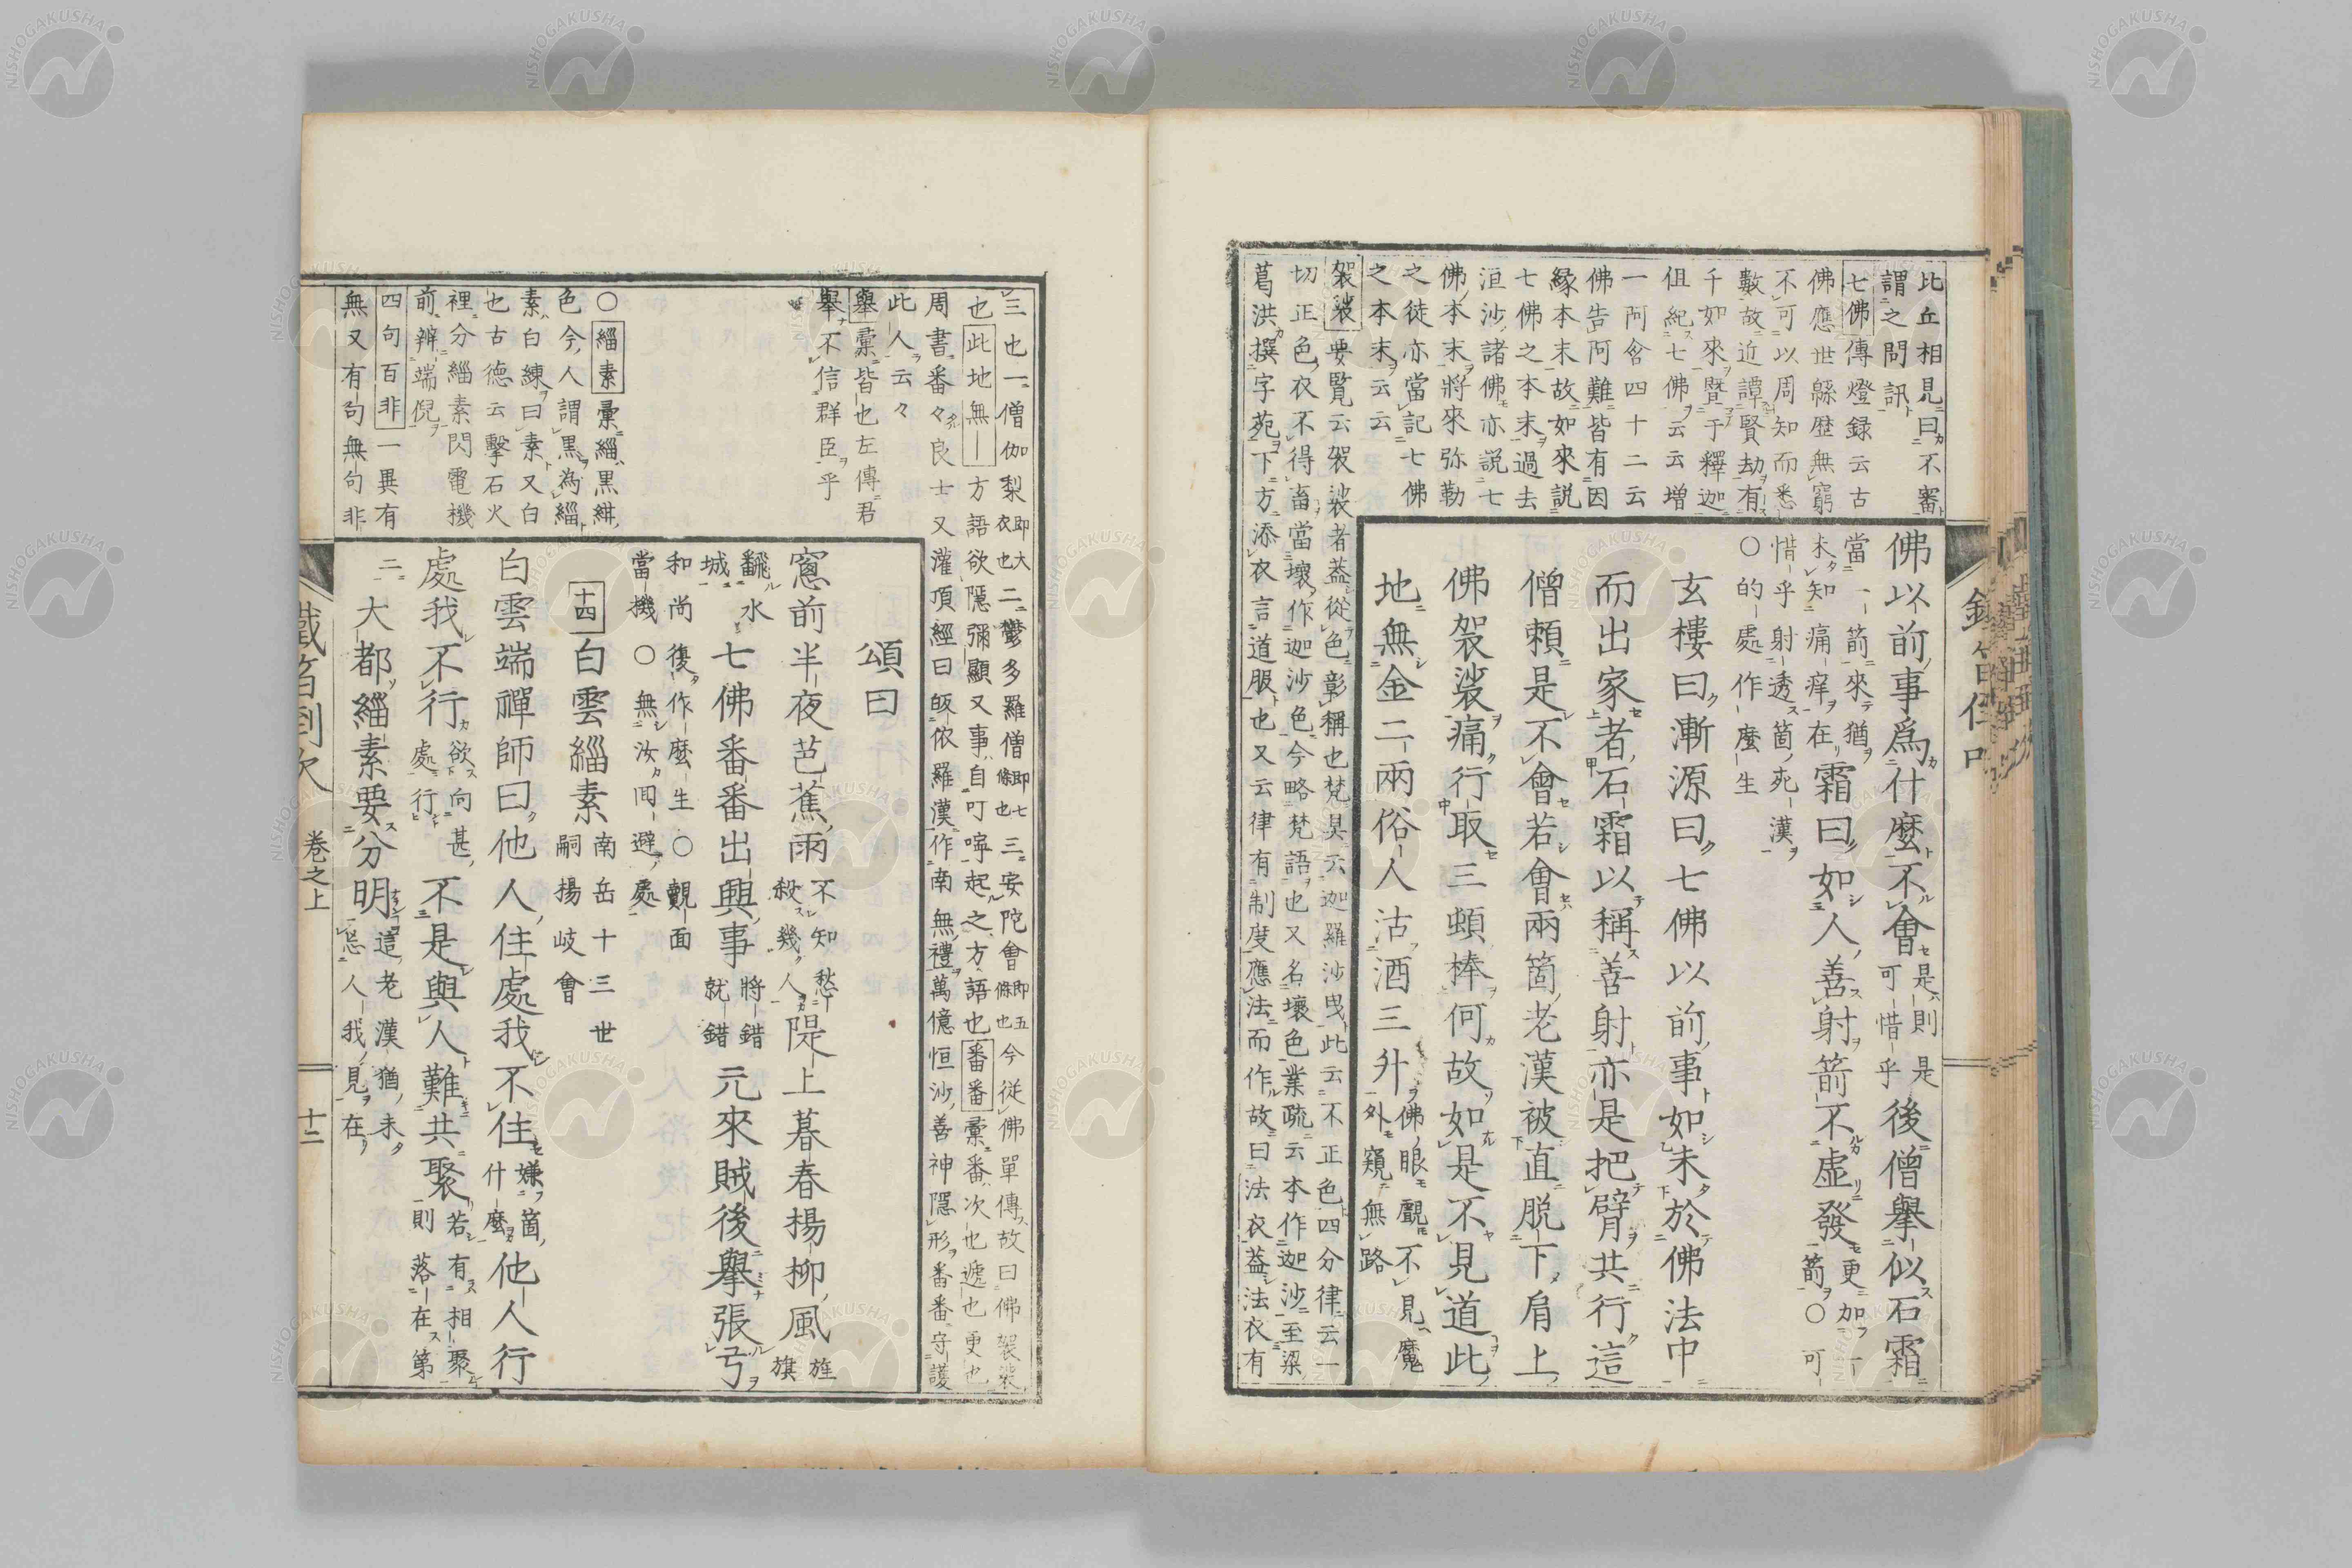 比丘相見曰不審
謂之問訊
七佛傳燈録云古
佛應世緜歴無窮
不可以周知而悉
數故近譚賢劫有
千如來曁于釋迦
但紀七佛云云増
一阿含四十二云
佛告阿難皆有因
縁本末故如來説
七佛之本末過去
洹沙諸佛亦説七
佛本末將來弥勒
之徒亦當記七佛
之本末云云
袈裟要覧云袈裟者葢從色彰稱也梵具云迦羅沙曳此云不正色四分律云一
切正色衣不得畜當壞作迦沙色今略梵語也又名壞色業疏云本作迦沙至梁
葛洪撰字苑下方添衣言道服也又云律有制度應法而作故曰法衣葢法衣有
佛以前事爲什麼不會是則是可惜乎後僧擧似石霜
當一箭來猶未知痛痒在霜曰如人善射箭不虚發更加一箭○可
惜乎射透箇死漢
○的處作麼生
玄樓曰漸源曰七佛以前事如未於佛法中
而出家者石霜以稱善射亦是把臂共行這
僧頼是不會若會兩箇老漢被直脱下肩上
佛袈裟痛行取三頓棒何故如是不見道此
地無金二兩俗人沽酒三升佛眼覷不見魔外窺無路
三也一僧伽梨即大衣也二鬱多羅僧即七條也三安陀會即五條也今從佛單傳故曰佛袈裟
也此地無―方語欲隱彌顯又事自叮嚀起之方語也番番彙番次也遞也更也
周書番々良士又灌頂經曰皈依羅漢作南無禮萬億恒沙善神隱形番番守護
此人云々
擧彙皆也左傳君
擧不信群臣乎
○緇素彙緇黒紺
色今人謂黒為緇
素白練曰素又白
也古德云擊石火
裡分緇素閃電機
前辨端倪
四句百非一異有
無又有句無句非
頌曰
窻前半夜芭蕉雨不知愁殺幾人隄上暮春楊柳風旌旗
飜水城七佛番番出興事將錯就錯元來賊後擧張弓
和尚後作麼生○覿面
當機○無汝囘避處
十四白雲緇素南岳十三世嗣楊岐會
白雲端禪師曰他人住處我不住嫌箇什麼他人行
處我不行欲向甚處行不是與人難共聚若有相聚則落在第
二大都緇素要分明這老漢猶未忘人我見在
鐵笛倒吹
卷之上
十二